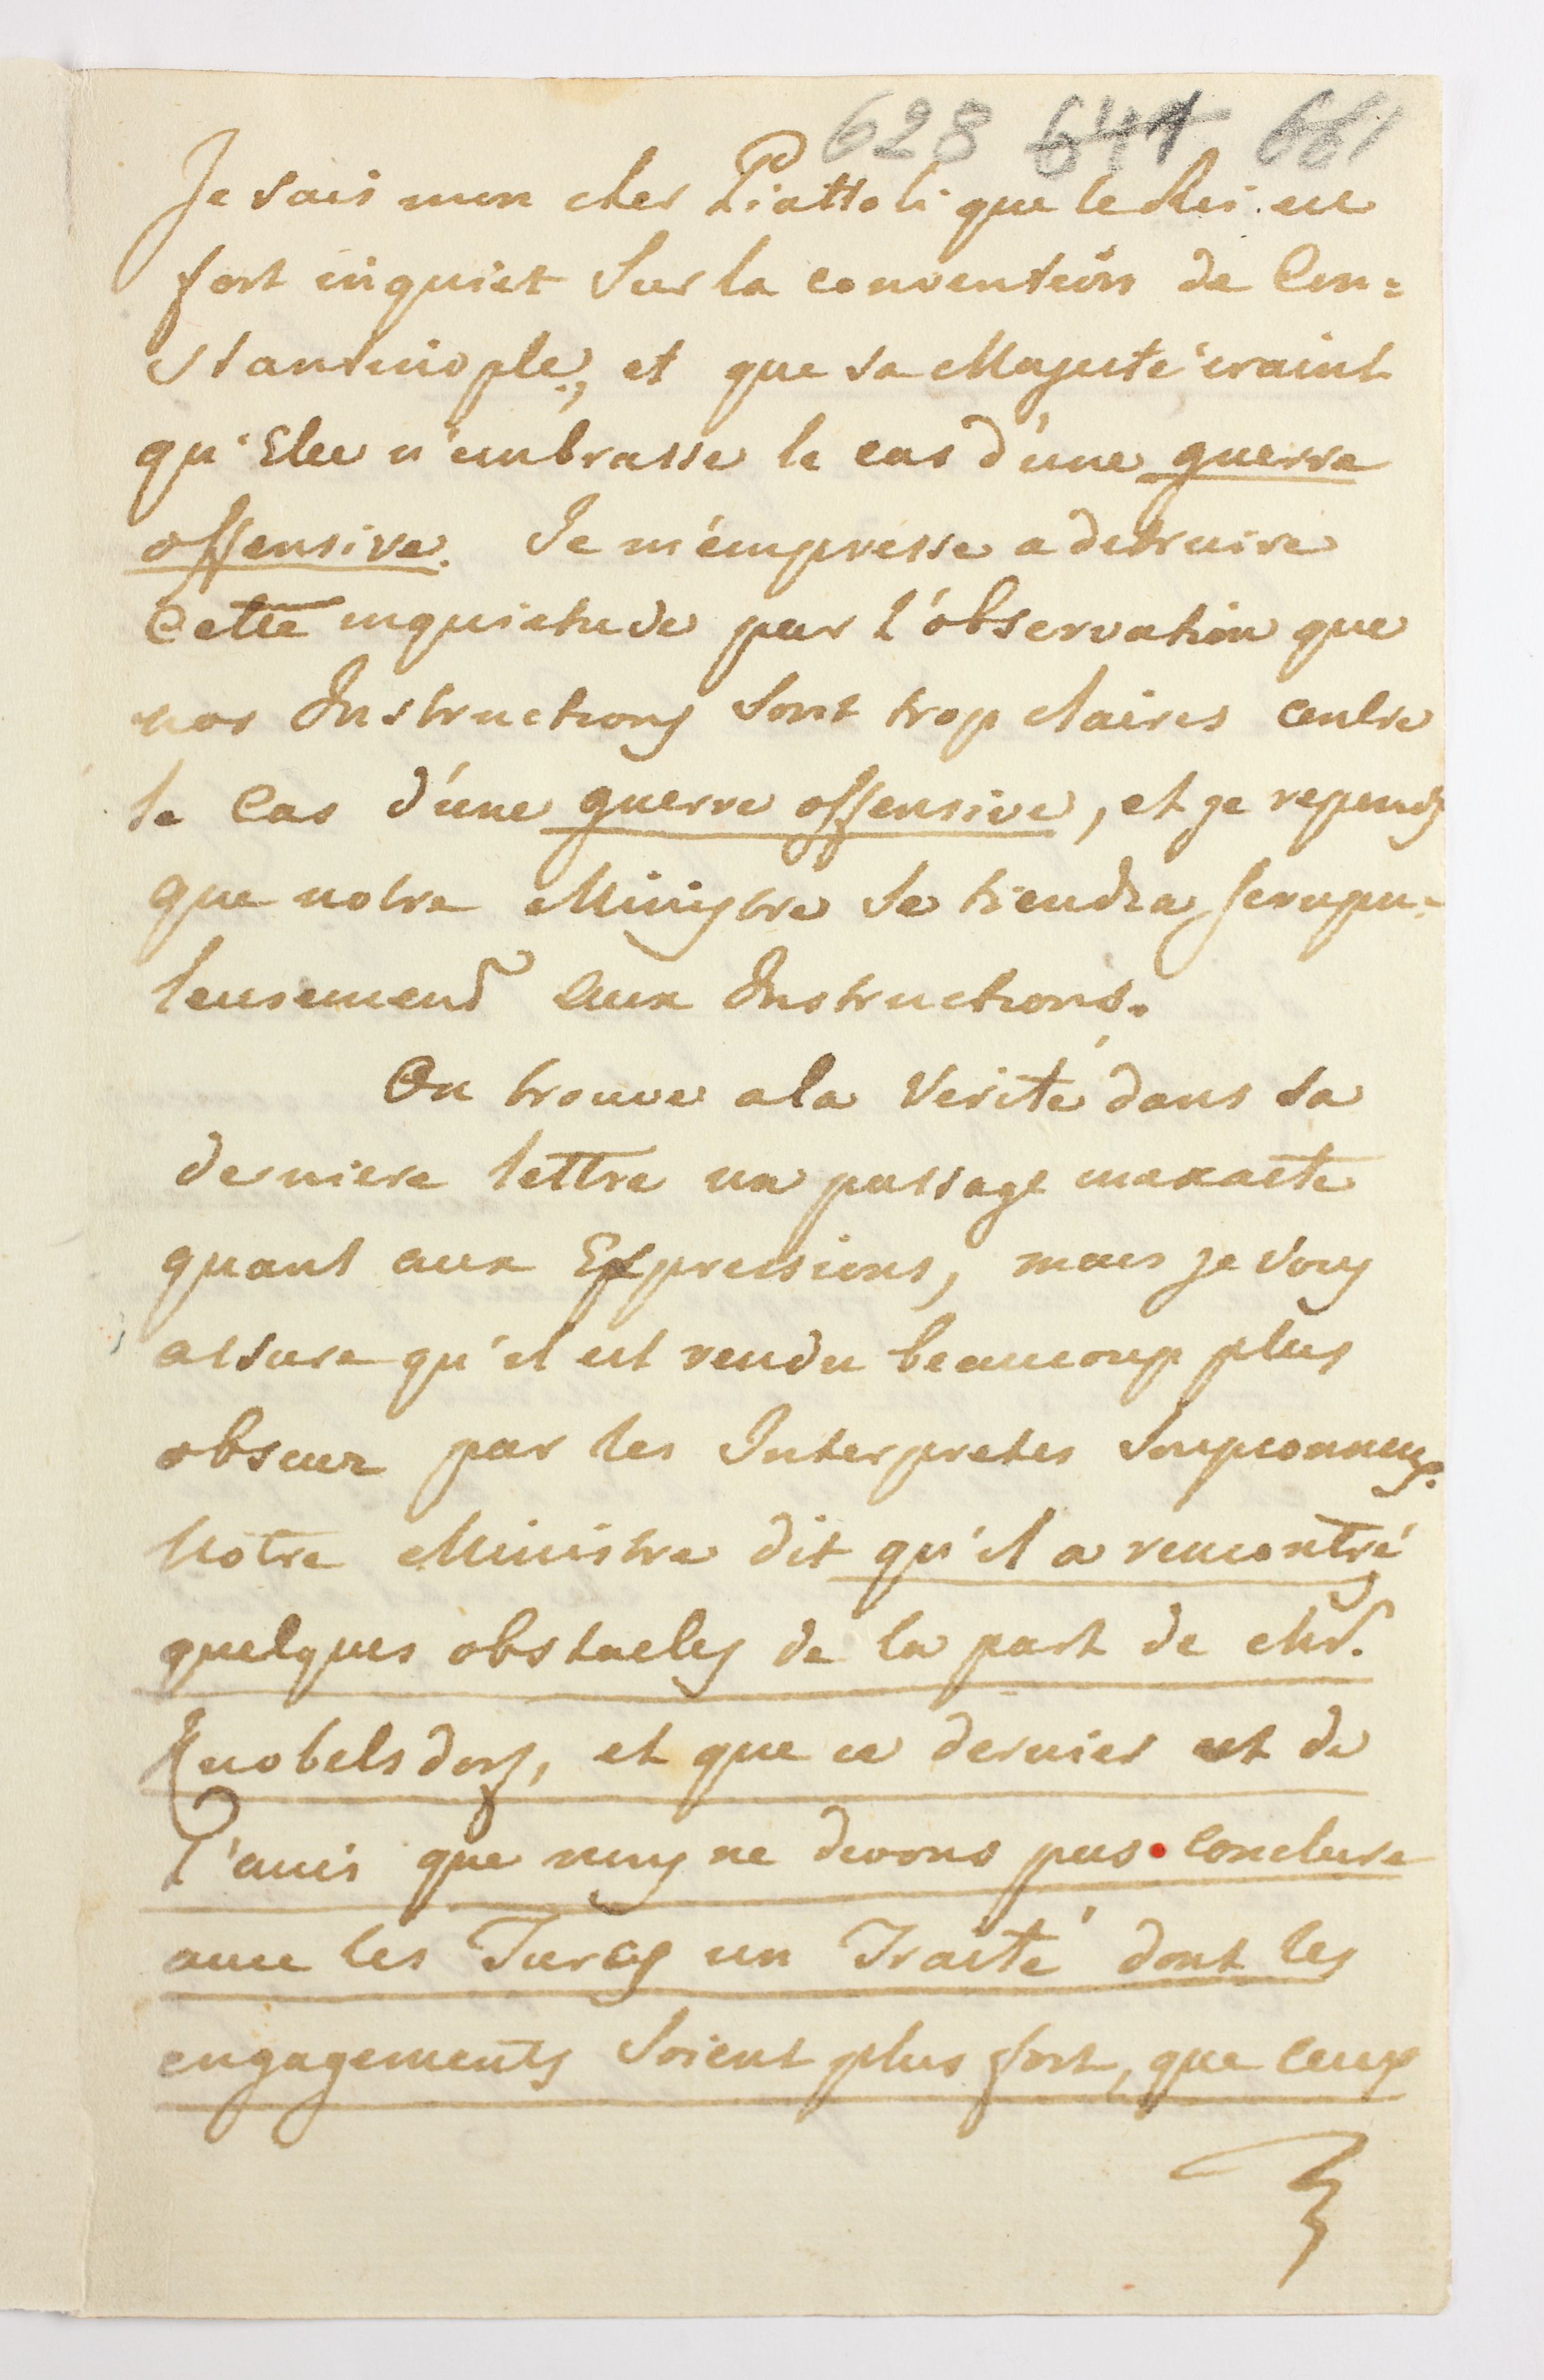 628 641 661
Je sais mon cher Piattoli que le Roi est
fort inquiet Sur la convention de Con=
stantinople, et que sa Majesté craint
qu'Elle n'embrasse le cas d'une guerre
offensive. Je m'empresse a detruire
Cette inquietude par l'observation que
nos Instructions sont trop claires contre
le Cas d'une guerre offensive, et je reponds
que notre Ministre Se tiendra scrupu=
leusement aux Instructions.
On trouve a la Verité dans sa
derniere lettre un passage inexacte
quant aux Expressions, mais je vous
assure qu'il est rendu beaucoup plus
obscur par les Interpretes Soupconneux.
Notre Ministre dit qu'il a rencontré
quelques obstacles de la part de Mr.
Knobelsdorf, et que ce dernier est de
l'avis que nous ne devons pas conclure
avec les Turcs un Traité dont les
engagements Soient plus fort, que ceux